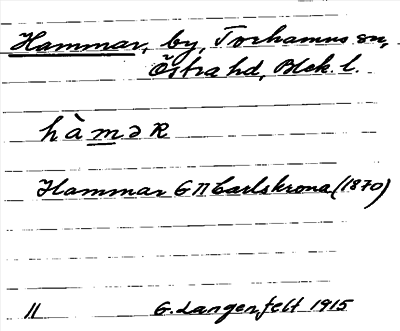 Hammar, by, Torhamns sn,
Östra hd, Blek. l.
hàmər
Hammar G II Carlskrona (1870)
II G. Langenfelt 1915